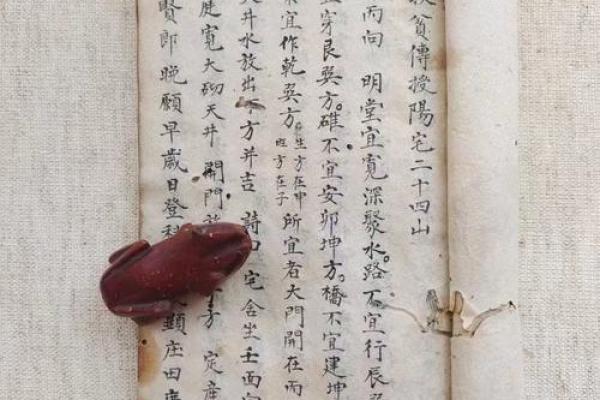 貧傳授陽宅二十四山
丙向 明堂宜寬深聚水路。不宜行辰
穿艮巽方。碓不宜安卯坤方。橋不宜建坤
宜作乾巽方。生方在申旺方在子所宜者大門開在丙
井水放出方并吉 詩曰 宅舍坐壬面
庭寬大砌天井 開門方 定
賢郎晚願早歲日登科顯庄田